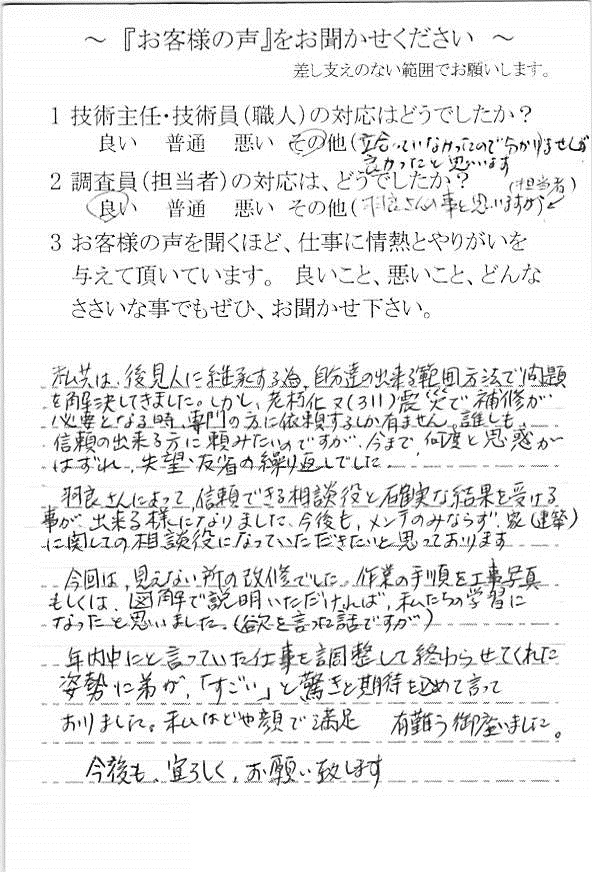 ～『お客様の声』をお聞かせください～
差し支えのない範囲でお願いします。
1 技術主任・技術員（職人）の対応はどうでしたか？
良い 普通 悪い その他（立合っていなかったので分かりませんが
良かったと思います
2 調査員（担当者）の対応は、どうでしたか？（担当者）
良い 普通 悪い その他（羽良さんの事と思いますが
3 お客様の声を聞くほど、仕事に情熱とやりがいを
与えて頂いています。 良いこと、悪いこと、どんな
ささいな事でもぜひ、お聞かせ下さい。
私共は、後見人に継承する為、自分達の出来る範囲方法で問題
を解決してきました。しかし、老朽化又（311）震災で補修が
必要となる時、専門の方に依頼するしか有ません。誰しも、
信頼の出来る方に頼みたいのですが、今まで何度と思惑が
はずれ、失望・反省の繰り返しでした
羽良さんによって、信頼できる相談役と確実な結果を受ける
事が、出来る様になりました、今後も、メンテのみならず、家（建築）
に関しての相談役になっていただきたいと思っております
今回は、見えない所の改修でした。作業の手順を工事写真
もしくは、図解で説明いただければ、私たちの学習に
なったと思いました。（欲を言った話ですが）
年内中にと言っていた仕事を調整して終わらせてくれた
姿勢に弟が、「すごい」と驚きと期待を込めて言って
おりました。私はどや顔で満足 有難う御座いました。
今後も、宜ろしく、お願い致します